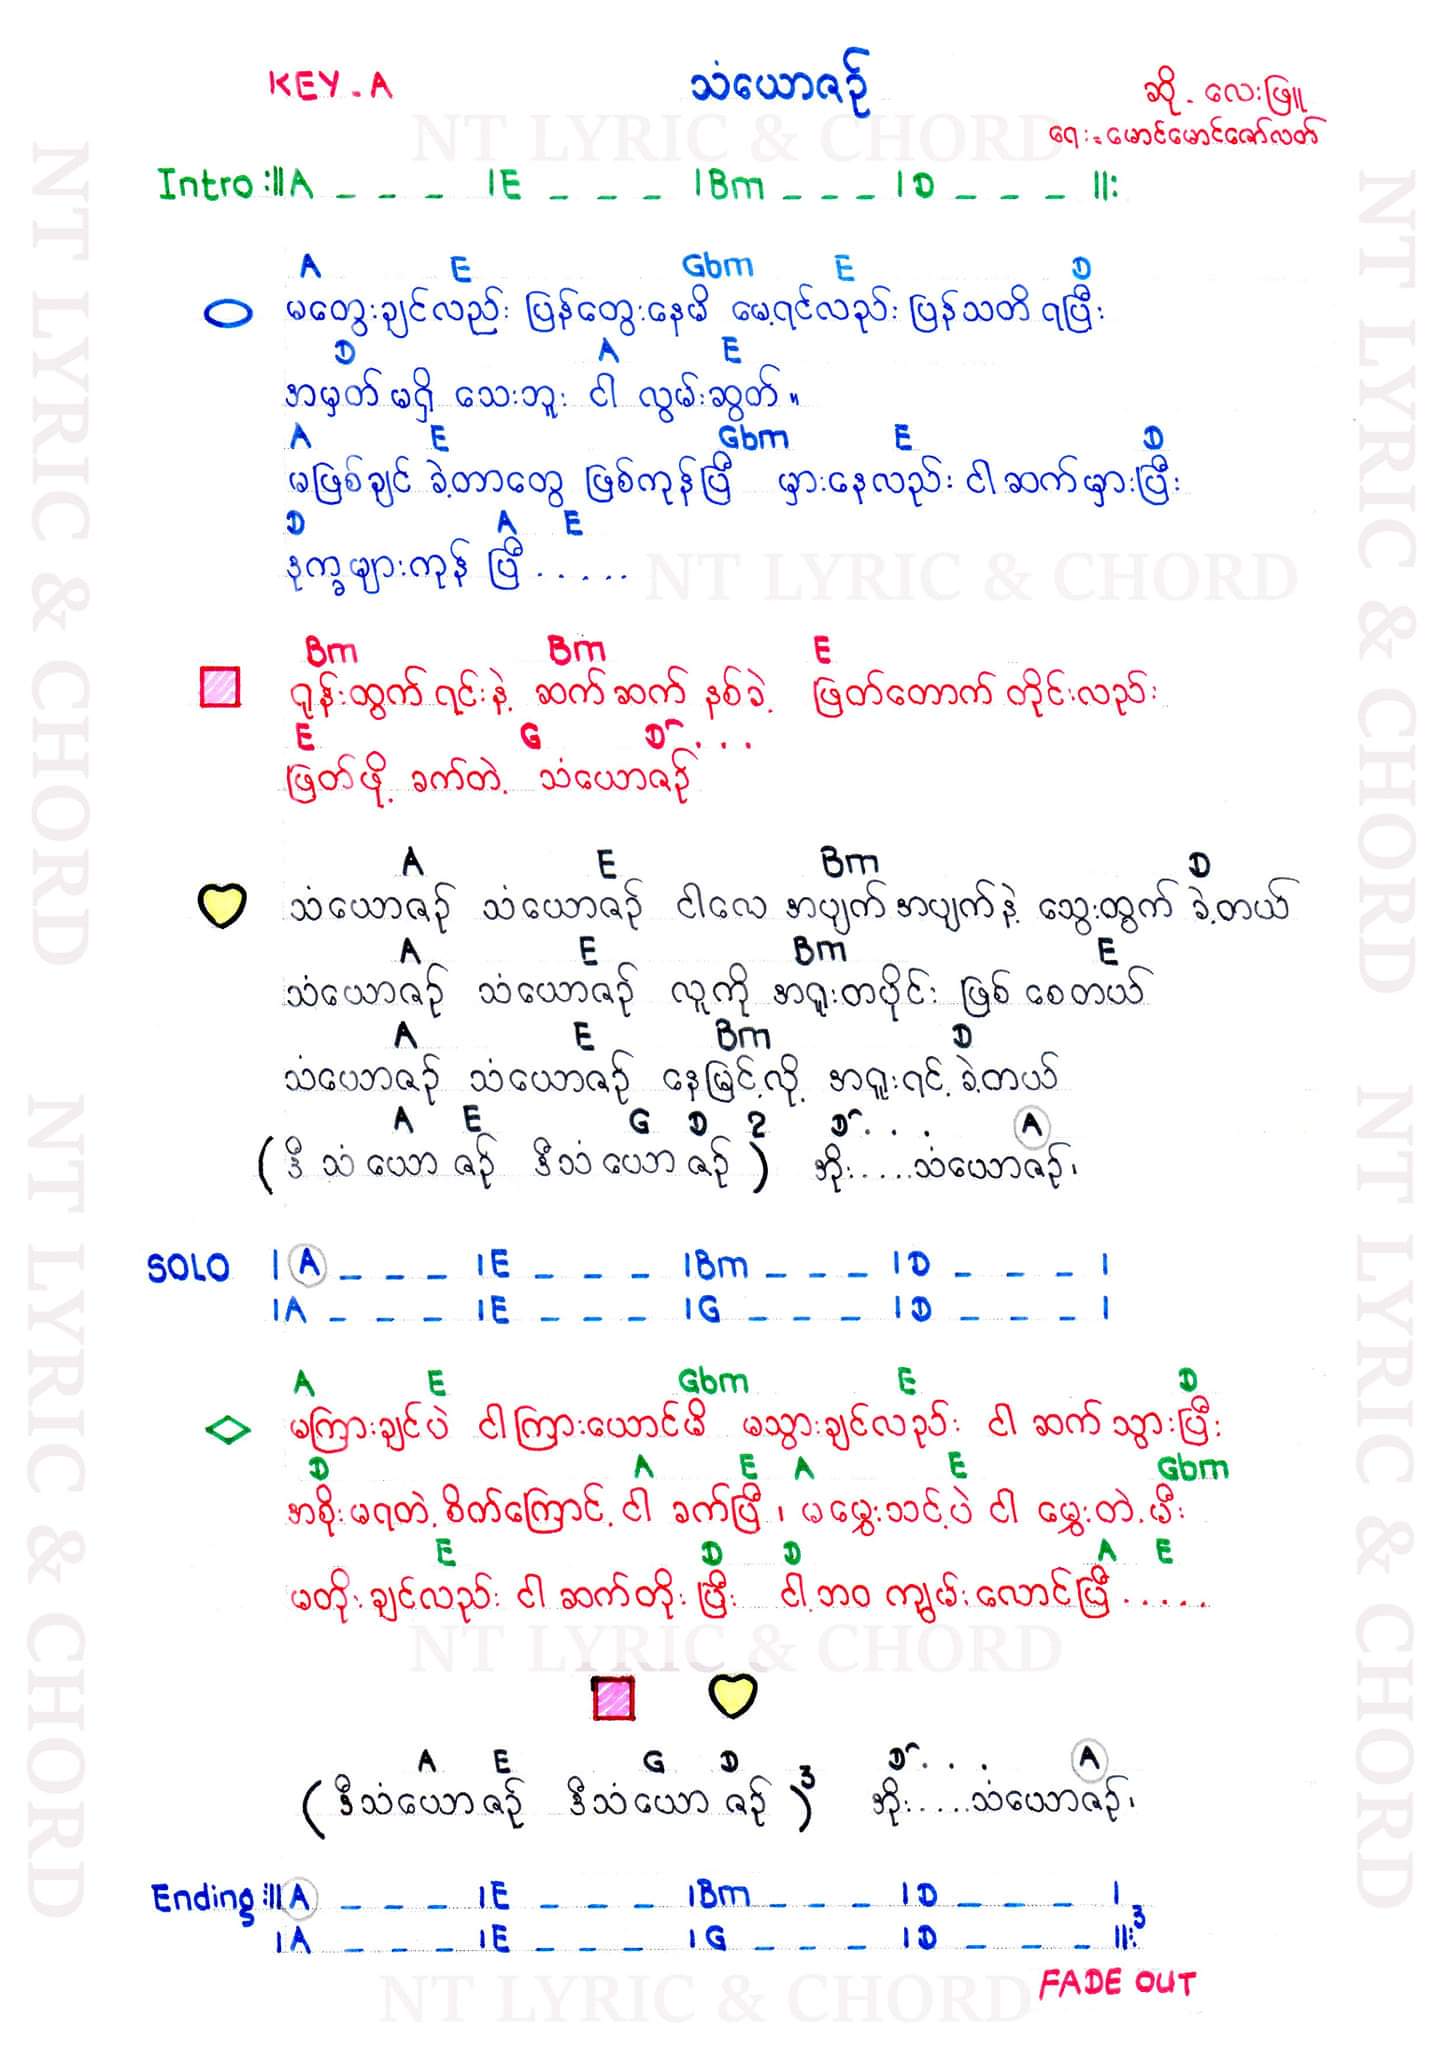 KEY.A သံယောဇဉ် ဆို - လေးဖြူ
ရေး - မောင်မောင်ဇော်လတ်
NT LYRIC & CHORD
Intro :||A _ _ _ |E _ _ _ |Bm _ _ _ |D _ _ _ ||:
A E Gbm E D
မတွေးချင်လည်း ပြန်တွေးနေမိ မေ့ရင်လည်း ပြန်သတိ ရပြီး
D A E
အမှတ်မရှိ သေးဘူး ငါ လွမ်းဆွတ်။
A E Gbm E D
မဖြစ်ချင် ခဲ့တာတွေ ဖြစ်ကုန်ပြီ မှားနေလည်း ငါဆက်မှားပြီး
D A E
ဒုက္ခများကုန် ပြီ ......
NT LYRIC & CHORD
Bm Bm E
ရုန်းထွက်ရင်းနဲ့ ဆက်ဆက် နစ်ခဲ့ ဖြတ်တောက် တိုင်းလည်း
E G D . . .
ဖြတ်ဖို့ ခက်တဲ့ သံယောဇဉ်
A E Bm D
သံယောဇဉ် သံယောဇဉ် ငါလေ အပျက်အပျက်နဲ့ သွေးထွက် ခဲ့တယ်
A E Bm E
သံယောဇဉ် သံယောဇဉ် လူကို အရူးတပိုင်း ဖြစ် စေတယ်
A E Bm D
သံယောဇဉ် သံယောဇဉ် နေမြင့်လို့ အရူးရင့် ခဲ့တယ်
A E G D 2 D . . . A
(ဒီ သံ ယော ဇဉ် ဒီသံ ယော ဇဉ် ) အိုး.....သံယောဇဉ်၊
SOLO | A _ _ _ |E _ _ _ |Bm _ _ _ |D _ _ _ |
|A _ _ _ |E _ _ _ |G _ _ _ |D _ _ _ |
A E Gbm E D
မကြားချင်ပဲ ငါကြားယောင်မိ မသွားချင်လည်း ငါ ဆက်သွားပြီး
D A E A E Gbm
အစိုးမရတဲ့စိတ်ကြောင့် ငါ ခက်ပြီ ၊ မမွှေးသင့်ပဲ ငါ မွှေးတဲ့မီး
E D D A E
မတိုးချင်လည်း ငါဆက်တိုးပြီး ငါ့ဘဝ ကျွမ်းလောင်ပြီ .....
NT LYRIC & CHORD
A E G D 3 D . . . A
(ဒီသံယောဇဉ် ဒီသံယော ဇဉ် ) အိုး.....သံယောဇဉ်၊
Ending :|||A _ _ _ |E _ _ _ |Bm _ _ _ |D _ _ _ |
|A _ _ _ |E _ _ _ |G _ _ _ |D _ _ _ ||: 3
FADE OUT
NT LYRIC & CHORD
NT LYRIC & CHORD
NT LYRIC & CHORD
NT LYRIC & CHORD
NT LYRIC & CHORD